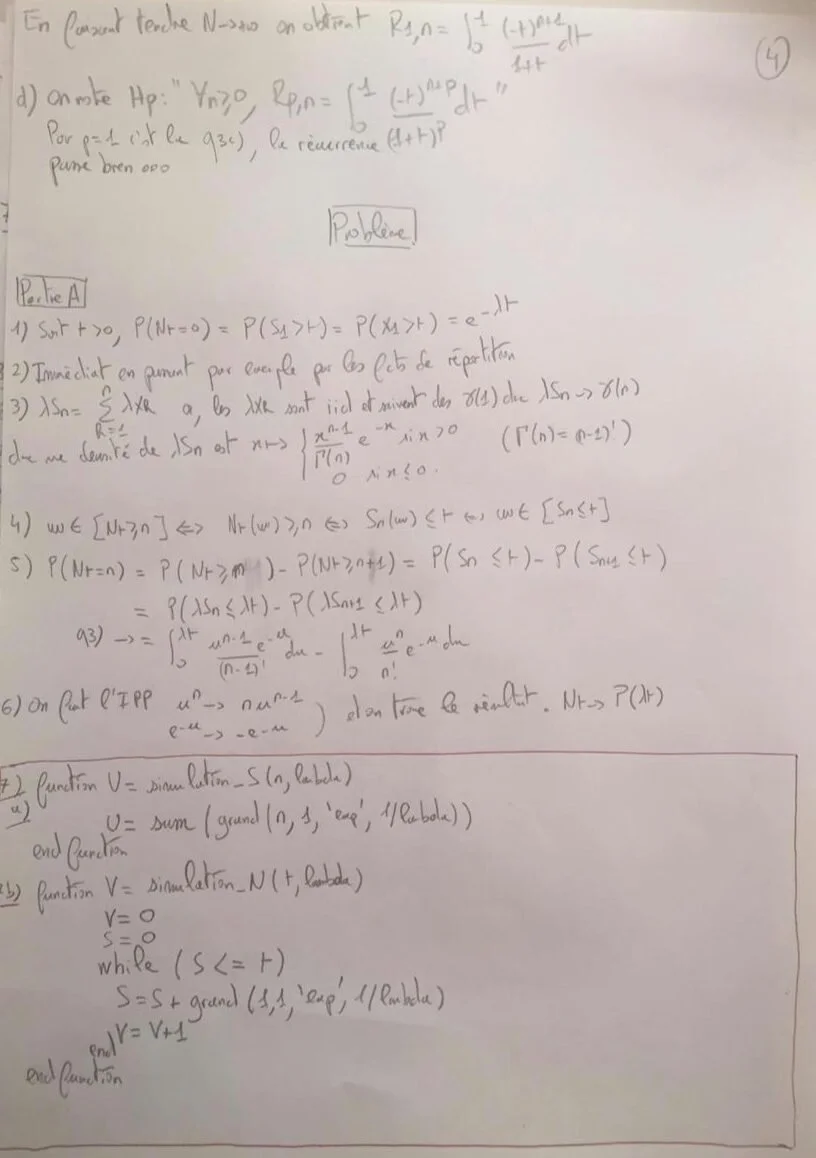 En faisant tendre N→+∞ on obtient R1,n = ∫_0^1 (-t)^{n+1}/(1+t) dt
④
d) On note Hp: " ∀n≥0, Rp,n = ∫_0^1 (-t)^{n+p}/(1+t)^p dt "
Por p=1 c'st la q3c), la récurrence
passe bien ooo
Problème
Partie A
1) Soit t>0, P(Nt=0) = P(S1>t) = P(X1>t) = e^{-λt}
2) Immédiat en passant par exemple par les fcts de répartition
3) λSn = Σ_{k=1}^n λXk or, les λXk sont iid et suivent des γ(1) dc λSn → γ(n)
dc une densité de λSn est x ↦ { x^{n-1}/Γ(n) e^{-x} si x>0 (Γ(n) = (n-1)!)
0 si x≤0.
4) w∈[Nt≥n] ⇔ Nt(w)≥n ⇔ Sn(w)≤t ⇔ w∈[Sn≤t]
5) P(Nt=n) = P(Nt≥n) - P(Nt≥n+1) = P(Sn≤t) - P(Sn+1≤t)
= P(λSn≤λt) - P(λSn+1≤λt)
q3) → = ∫_0^{λt} u^{n-1}e^{-u}/(n-1)! du - ∫_0^{λt} u^n/n! e^{-u} du
6) On fait l'IPP u^n → n u^{n-1}
e^{-u} → -e^{-u} ) et on trouve le résultat. Nt → P(λt)
7) function U = simulation_S(n, labda)
a) U = sum(grand(n,1,'exp',1/labda))
end function
b) function V = simulation_N(t, lambda)
V = 0
S = 0
while (S <= t)
S = S + grand(1,1,'exp',1/lambda)
V = V+1
end
end function